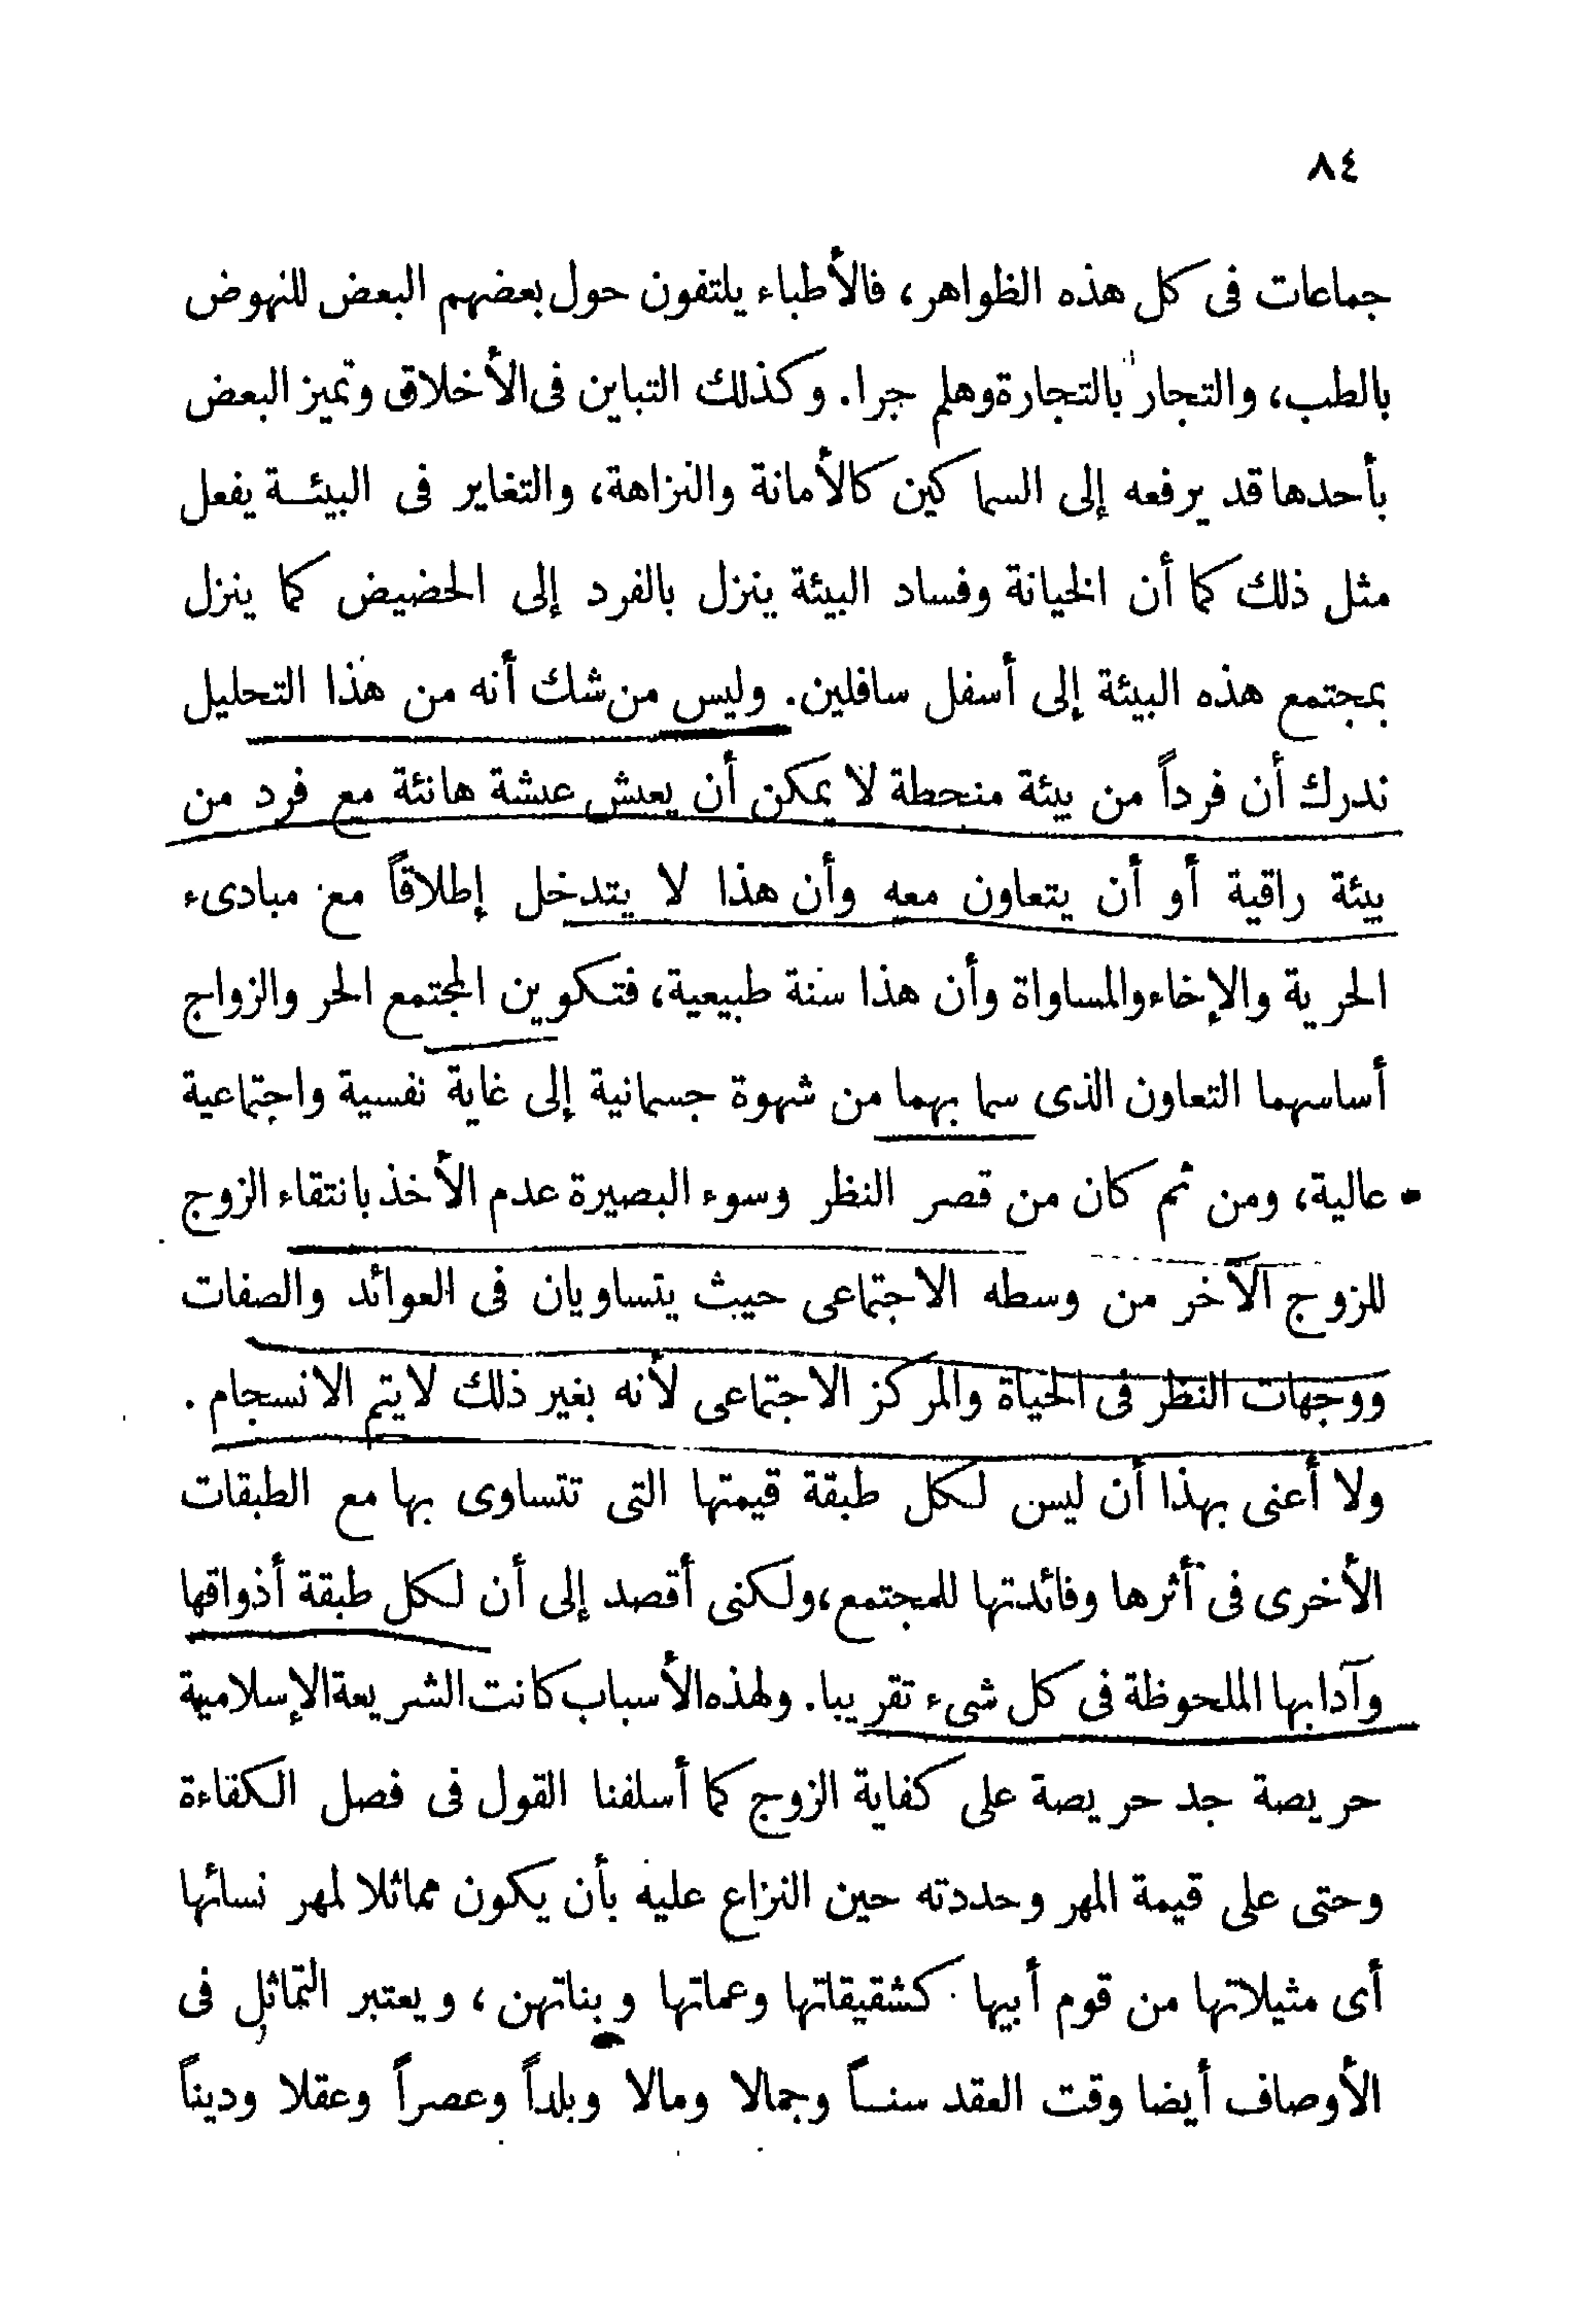 ٨٤
جماعات فى كل هذه الظواهر، فالأطباء يلتفون حول بعضهم البعض للنهوض
بالطب، والتجار بالتجارة وهلم جرا. وكذلك التباين فى الأخلاق وتميز البعض
بأحدها قد يرفعه إلى السماكين كالأمانة والنزاهة، والتغاير فى البيئة يفعل
مثل ذلك كما أن الخيانة وفساد البيئة ينزل بالفرد إلى الحضيض كما ينزل
بمجتمع هذه البيئة إلى أسفل سافلين. وليس من شك أنه من هذا التحليل
ندرك أن فرداً من بيئة منحطة لا يمكن أن يعش عىشة هانئة مع فرد من
بيئة راقية أو أن يتعاون معه وأن هذا لا يتدخل إطلاقاً مع مبادىء
الحرية والإخاء والمساواة وأن هذا سنة طبيعية، فتكوين المجتمع الحر والزواج
أساسهما التعاون الذى سما بهما من شهوة جسمانية إلى غاية نفسية واجتماعية
عالية، ومن ثم كان من قصر النظر وسوء البصيرة عدم الأخذ بانتقاء الزوج
للزوج الآخر من وسطه الاجتماعى حيث يتساويان فى العوائد والصفات
ووجهات النظر فى الحياة والمركز الاجتماعى لأنه بغير ذلك لا يتم الانسجام .
ولا أعنى بهذا أن ليس لكل طبقة قيمتها التى تتساوى بها مع الطبقات
الأخرى فى أثرها وفائدتها للمجتمع، ولكنى أقصد إلى أن لكل طبقة أذواقها
وآدابها الملحوظة فى كل شىء تقريبا. ولهذه الأسباب كانت الشريعة الإسلامية
حريصة جد حريصة على كفاية الزوج كما أسلفنا القول فى فصل الكفاءة
وحتى على قيمة المهر وحددته حين النزاع عليه بأن يكون مماثلا لمهر نسائها
أى مثيلاتها من قوم أبيها كشقيقاتها وعماتها وبناتهن ، ويعتبر التماثل فى
الأوصاف أيضا وقت العقد سنـاً وجمالا ومالا وبلداً وعصراً وعقلا وديناً